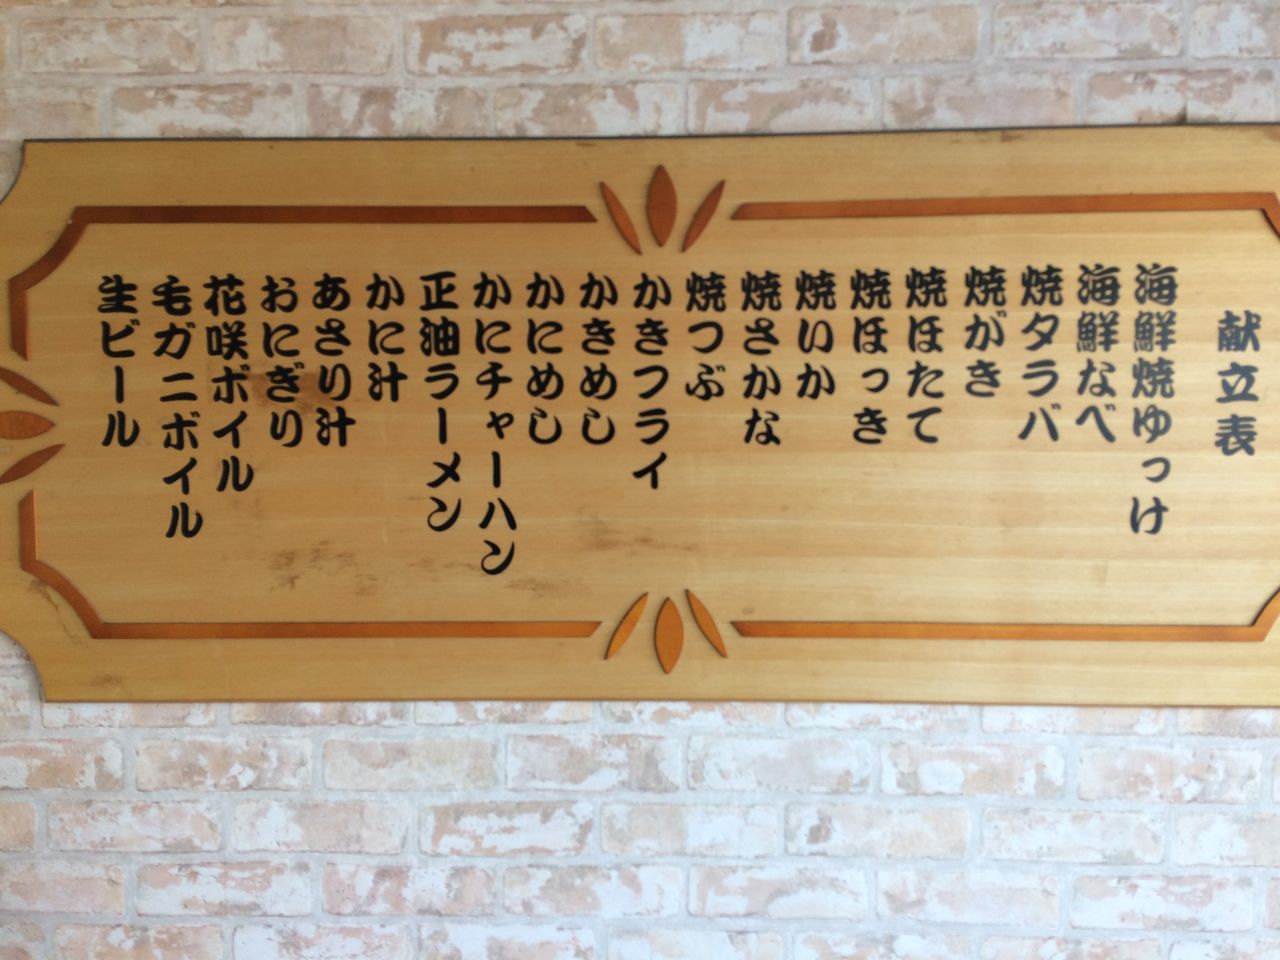 献立表
海鮮焼ゆっけ
海鮮なべ
焼タラバ
焼がき
焼ほたて
焼ほっき
焼いか
焼さかな
焼つぶ
かきフライ
かきめし
かにめし
かにチャーハン
正油ラーメン
かに汁
あさり汁
おにぎり
花咲ボイル
毛ガニボイル
生ビール